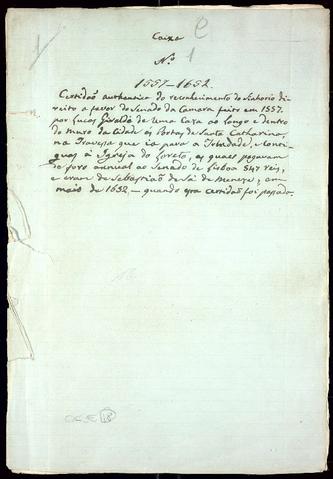 1
Caixa
C
Nº
1
1557–1652.
Certidão authentica do reconhecimento do Senhorio di-
reito a favor do Senado da Camara feito em 1557.
por Lucas Giraldo de uma Caza ao longo e dentro
do muro da Cidade ás Portas de Santa Catharina,
na Travessa que ia para a Trindade, e conti-
guas á Igreja do Loreto, as quaes pagavam
de foro annual ao Senado de Lisboa 547 reis,
e eram de Sebastião de Sá de Menezes, em
maio de 1652 – quando esta certidão foi passada.
18